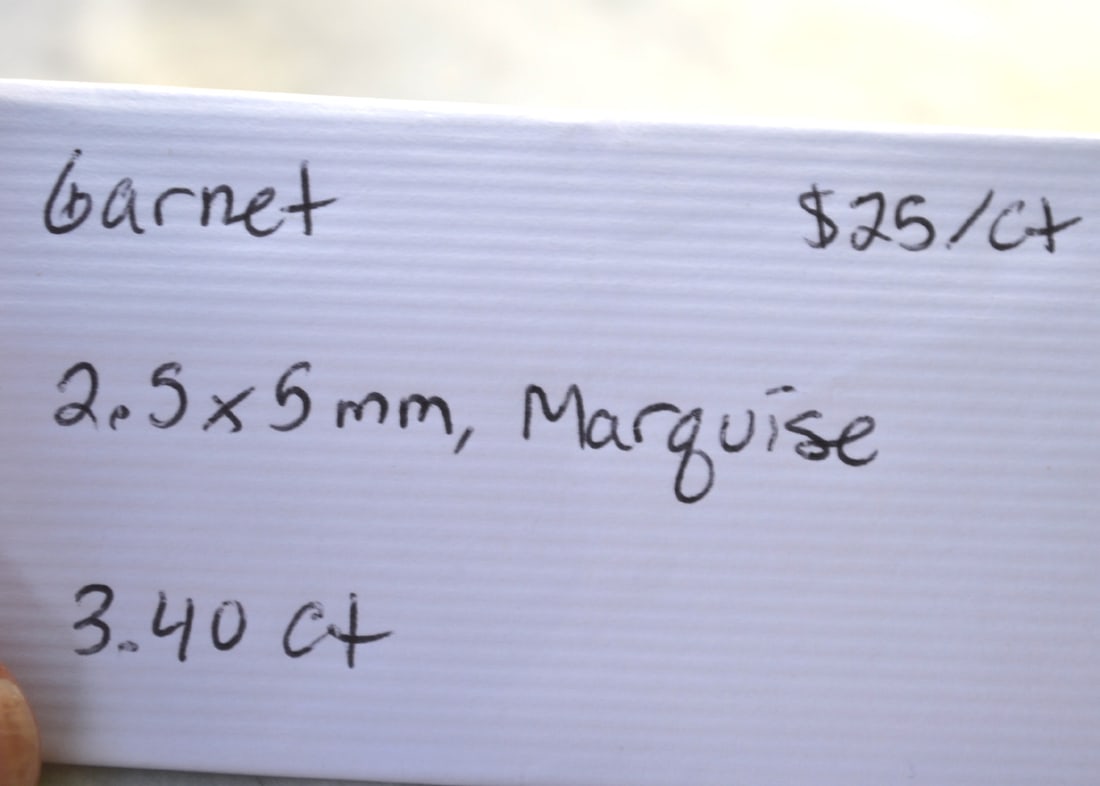 Garnet $25/ct
2.5x5mm, Marquise
3.40 ct